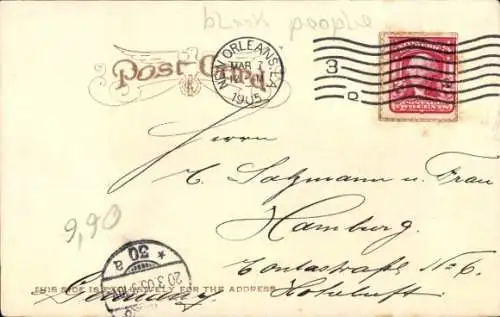 black people
Post Card
NEW ORLEANS, LA.
MAR 7
1905
3
D
Herrn
C. Salzmann u. Frau
Hamburg.
No 6.
Hoheluft.
Germany
6,90
30
a
20.3.05
THIS SIDE IS EXCLUSIVELY FOR THE ADDRESS